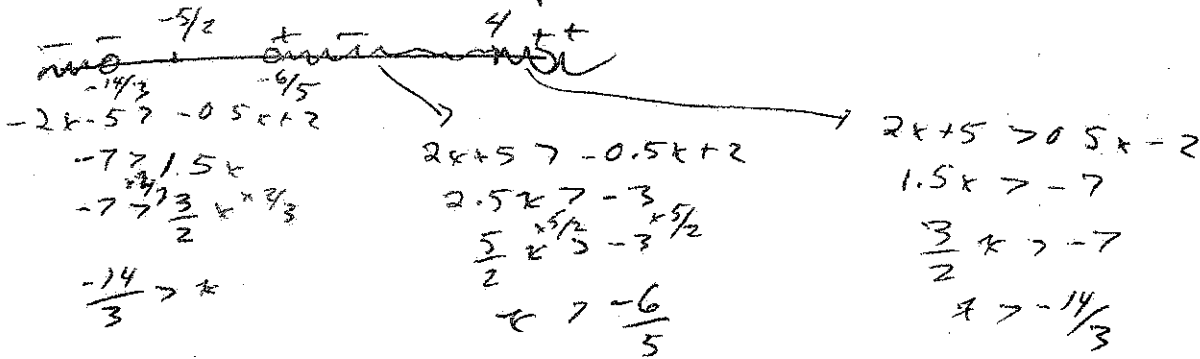 -5/2 4
- - + - + +
-14/3 -6/5
-2x-5 > -0.5x+2
-7 > 1.5x
-7 > 3/2 x ×2/3
-14/3 > x
2x+5 > -0.5x+2
2.5x > -3
5/2 x ×5/2 > -3 ×5/2
x > -6/5
2x+5 > 0.5x-2
1.5x > -7
3/2 x > -7
x > -14/3